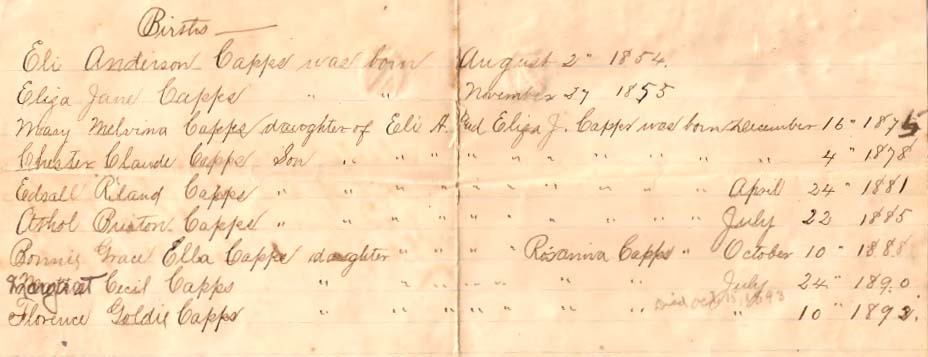 Births —
Eli Anderson Capps was born August 2" 1854.
Eliza Jane Capps " " November 27 1855
Mary Melvina Capps daughter of Eli A. and Eliza J. Capps was born December 16" 1875
Chester Claude Capps Son " " " " " " " " " " 4" 1878
Edsall Riland Capps " " " " " " " " " " April 24" 1881
Athol Buxton Capps " " " " " " " " " " July 22 1885
Bonnie Grace Ella Capps daughter " " " " Rosanna Capps " October 10" 1888
Margaret Cecil Capps " " " " " " " July 24" 1890
Died Oct 15, 1893
Florence Goldie Capps " " " " " " " " " 10" 1892.